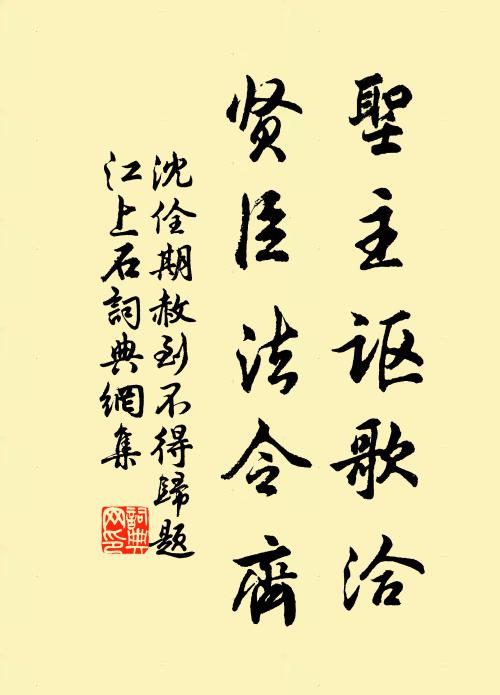 聖主讴歌洽
贤臣法令齊
沈佺期赦到不得歸題
江上石詞典網集
詞典
网印